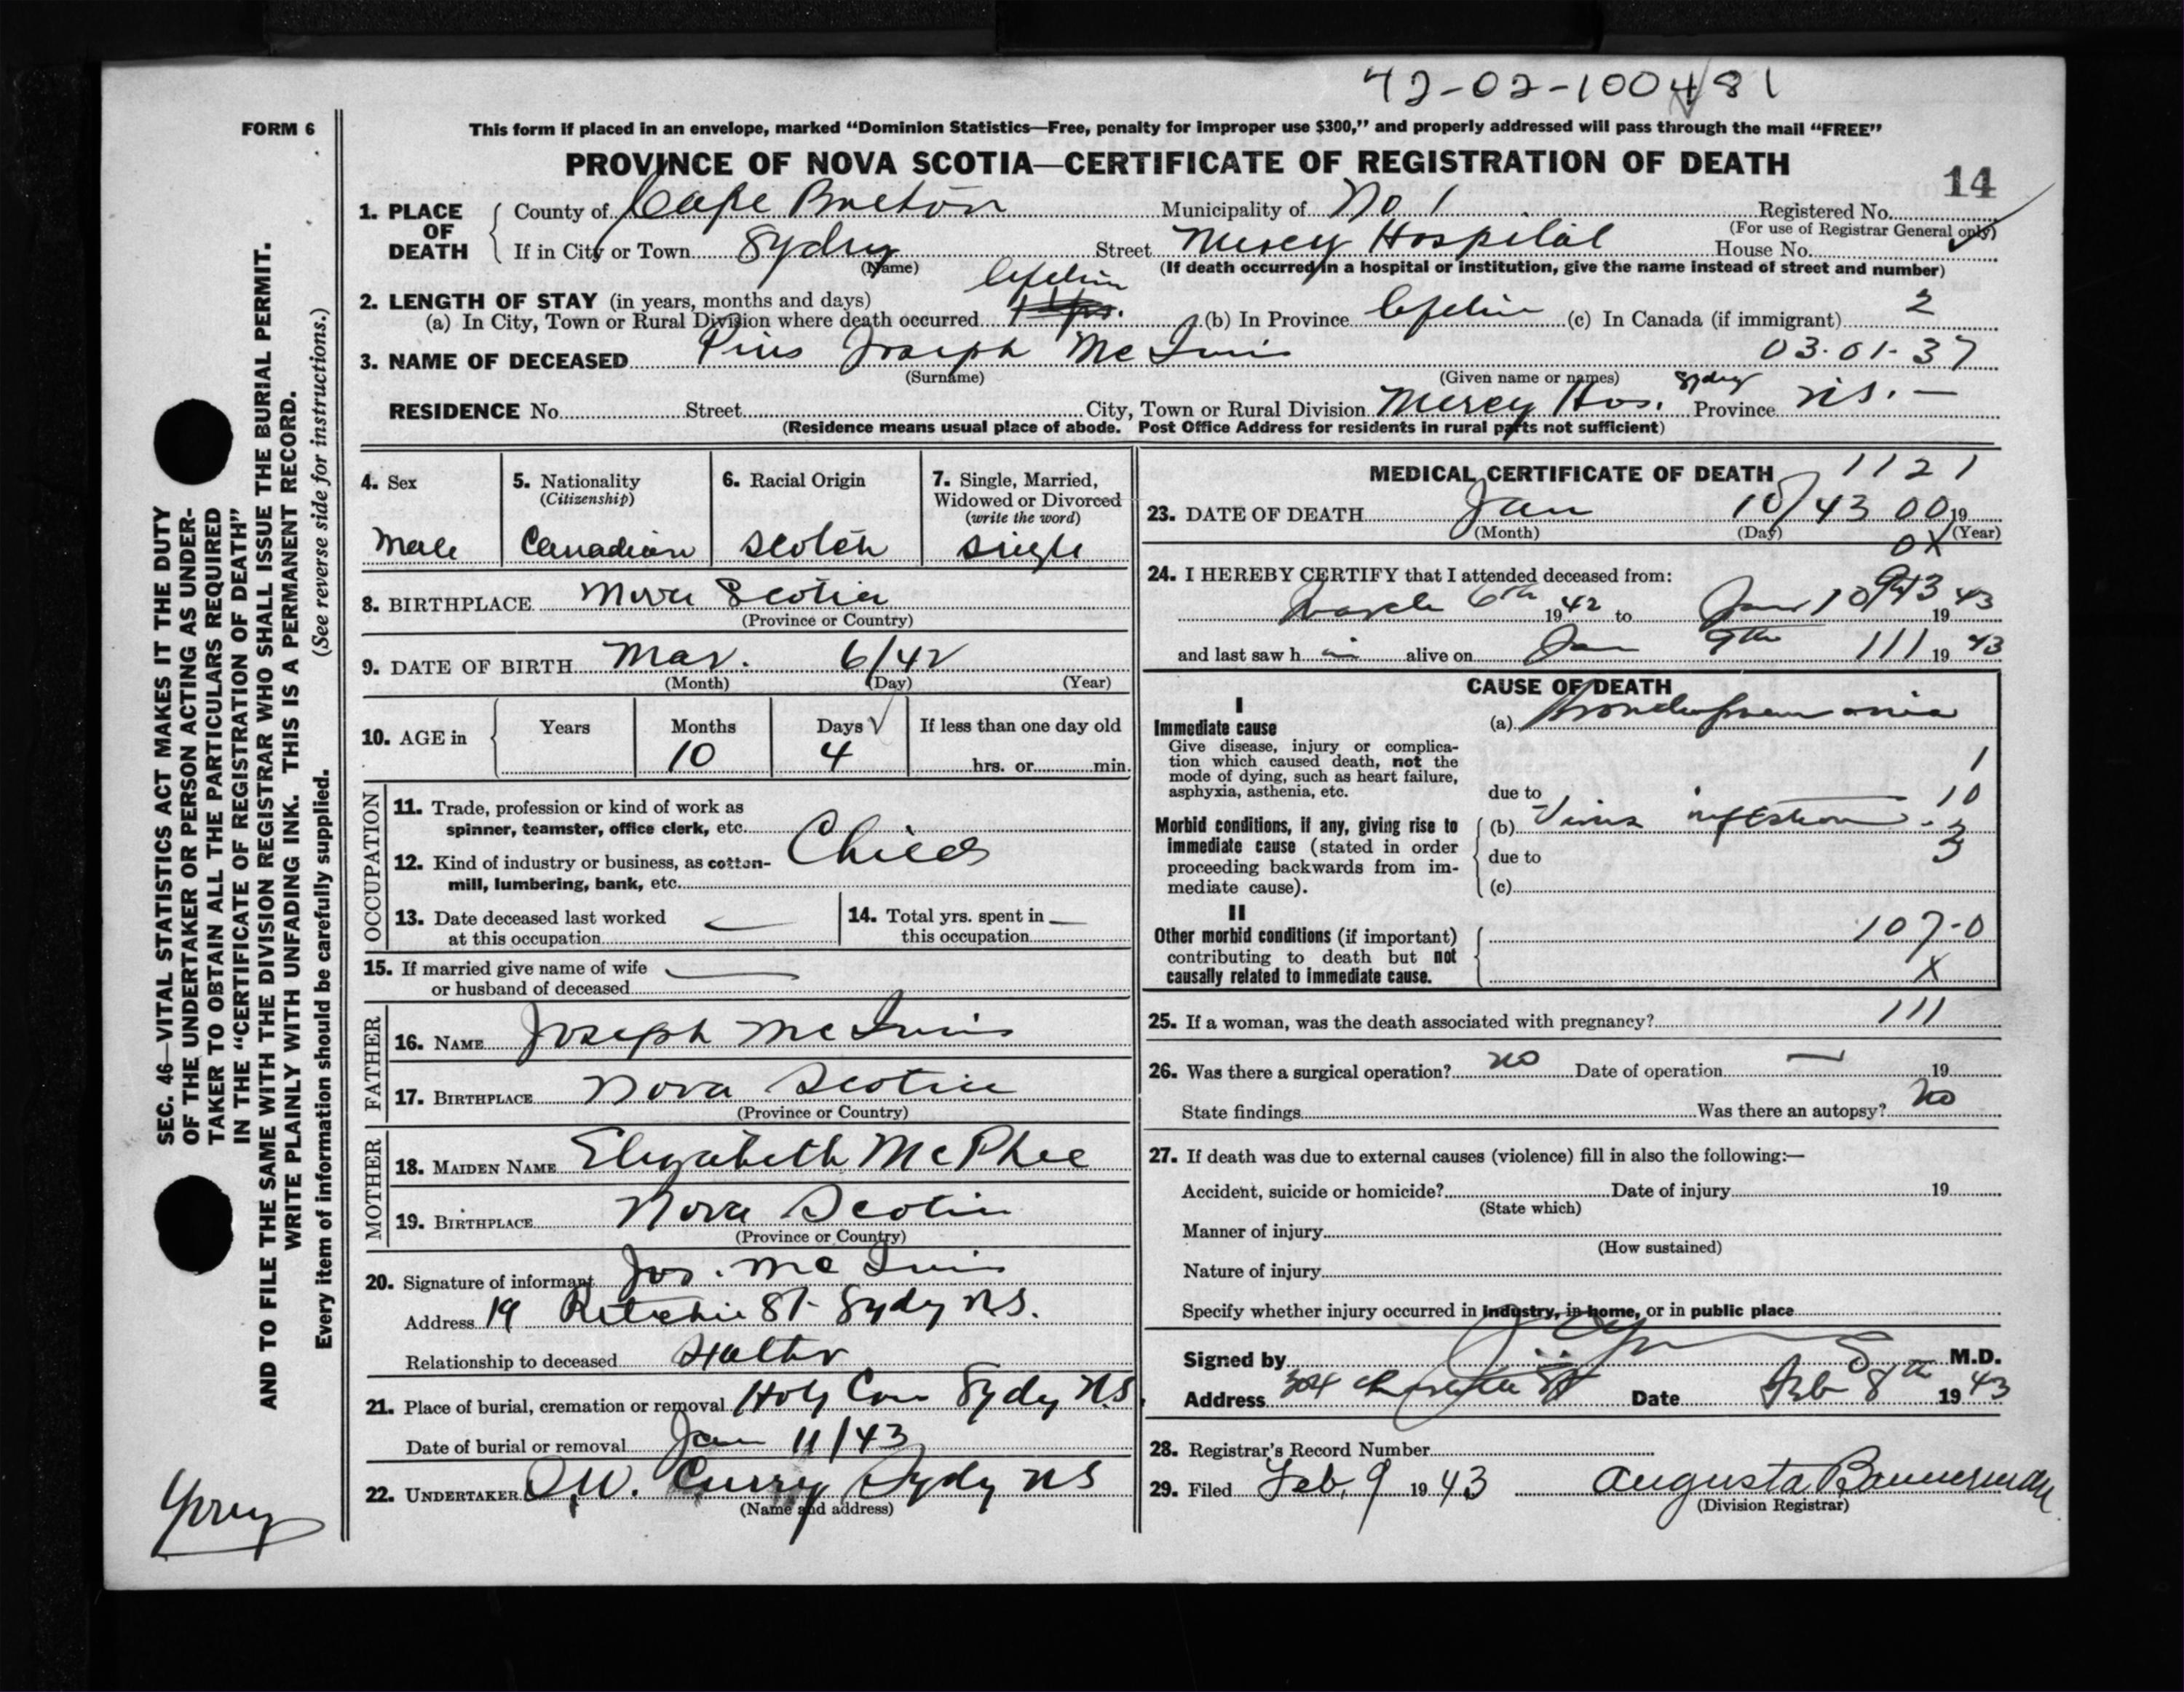 42-02-100481
FORM 6
This form if placed in an envelope, marked “Dominion Statistics—Free, penalty for improper use $300,” and properly addressed will pass through the mail “FREE”
PROVINCE OF NOVA SCOTIA—CERTIFICATE OF REGISTRATION OF DEATH
14
1. PLACE OF DEATH
County of Cape Breton Municipality of No 1 Registered No.
(For use of Registrar General only)
If in City or Town Sydney Street Mercy Hospital House No.
(Name) (If death occurred in a hospital or institution, give the name instead of street and number)
2. LENGTH OF STAY (in years, months and days)
(a) In City, Town or Rural Division where death occurred lifetime (b) In Province lifetime (c) In Canada (if immigrant) 2
3. NAME OF DECEASED Pius Joseph Mc Innis 03-01-37
(Surname) (Given name or names)
RESIDENCE No. Street City, Town or Rural Division Mercy Hos. Sydney Province N.S. —
(Residence means usual place of abode. Post Office Address for residents in rural parts not sufficient)
4. Sex
Male
5. Nationality
(Citizenship)
Canadian
6. Racial Origin
Scotch
7. Single, Married,
Widowed or Divorced
(write the word)
Single
8. BIRTHPLACE Nova Scotia
(Province or Country)
9. DATE OF BIRTH Mar. 6/42
(Month) (Day) (Year)
10. AGE in
Years Months Days √ If less than one day old
10 4 hrs. or min.
OCCUPATION
11. Trade, profession or kind of work as
spinner, teamster, office clerk, etc.
Child
12. Kind of industry or business, as cotton-
mill, lumbering, bank, etc.
13. Date deceased last worked
at this occupation
14. Total yrs. spent in —
this occupation
15. If married give name of wife —
or husband of deceased
FATHER
16. NAME Joseph Mc Innis
17. BIRTHPLACE Nova Scotia
(Province or Country)
MOTHER
18. MAIDEN NAME Elizabeth McPhee
19. BIRTHPLACE Nova Scotia
(Province or Country)
20. Signature of informant Jos. Mc Innis
Address 19 Ritchie St Sydney N.S.
Relationship to deceased Father
21. Place of burial, cremation or removal Holy Cross Sydney N.S.
Date of burial or removal Jan 11/43
22. UNDERTAKER Curry Sydney NS
(Name and address)
MEDICAL CERTIFICATE OF DEATH 1121
23. DATE OF DEATH Jan 10/43 00 19
(Month) (Day) (Year)
0X
24. I HEREBY CERTIFY that I attended deceased from:
March 6th 1942 to Jan 10 1943
and last saw h im alive on Jan 9th 111 1943
CAUSE OF DEATH
I
Immediate cause
Give disease, injury or complica-
tion which caused death, not the
mode of dying, such as heart failure,
asphyxia, asthenia, etc.
(a) Bronchopneumonia
1
due to
10
Morbid conditions, if any, giving rise to
immediate cause (stated in order
proceeding backwards from im-
mediate cause).
(b) Virus infection
due to
3
(c)
II
Other morbid conditions (if important)
contributing to death but not
causally related to immediate cause.
107-0
X
25. If a woman, was the death associated with pregnancy? 111
26. Was there a surgical operation? no Date of operation — 19
State findings Was there an autopsy? no
27. If death was due to external causes (violence) fill in also the following:—
Accident, suicide or homicide? Date of injury 19
(State which)
Manner of injury
(How sustained)
Nature of injury
Specify whether injury occurred in industry, in home, or in public place
Signed by M.D.
Address 304 Charlotte St Date Feb 8th 1943
28. Registrar's Record Number
29. Filed Feb. 9 1943 Augusta Bannerman
(Division Registrar)
SEC. 46—VITAL STATISTICS ACT MAKES IT THE DUTY
OF THE UNDERTAKER OR PERSON ACTING AS UNDER-
TAKER TO OBTAIN ALL THE PARTICULARS REQUIRED
IN THE “CERTIFICATE OF REGISTRATION OF DEATH”
AND TO FILE THE SAME WITH THE DIVISION REGISTRAR WHO SHALL ISSUE THE BURIAL PERMIT.
WRITE PLAINLY WITH UNFADING INK. THIS IS A PERMANENT RECORD.
Every item of information should be carefully supplied. (See reverse side for instructions.)